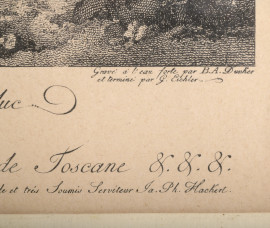 Gravé à l'eau forte par B. A. Dunker
et terminé par G. Eichler.
duc
de Toscane &. &. &.
le et très Soumis Serviteur Ja. Ph. Hackert.